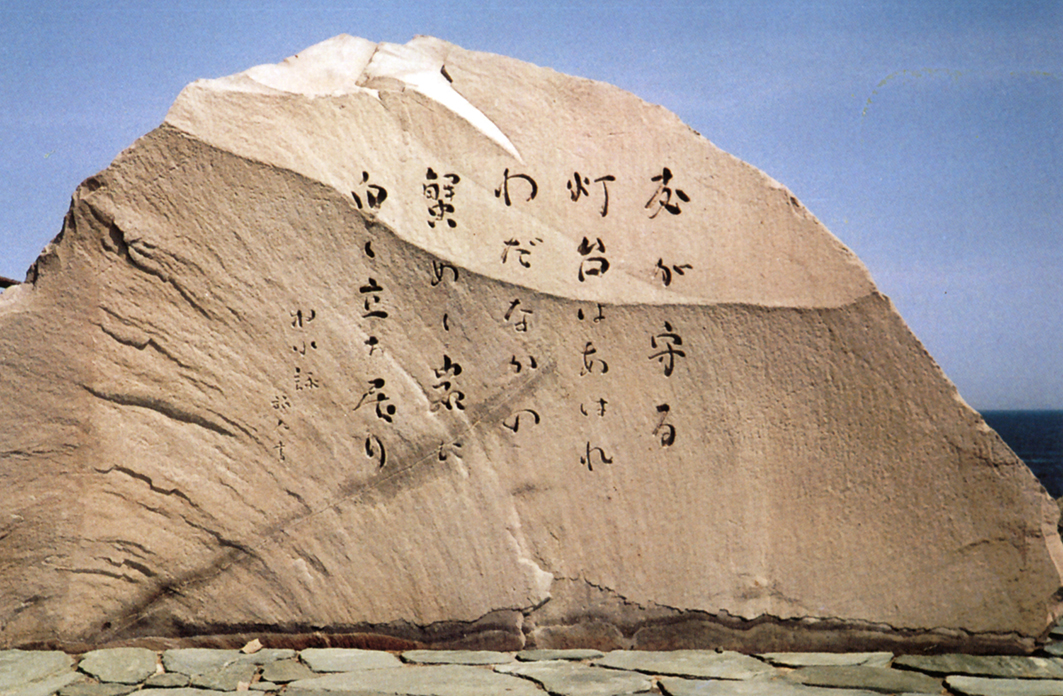 友が守る
灯台はあはれ
わだなかの
蟹めく岩に
白く立ち居り
牧水詠